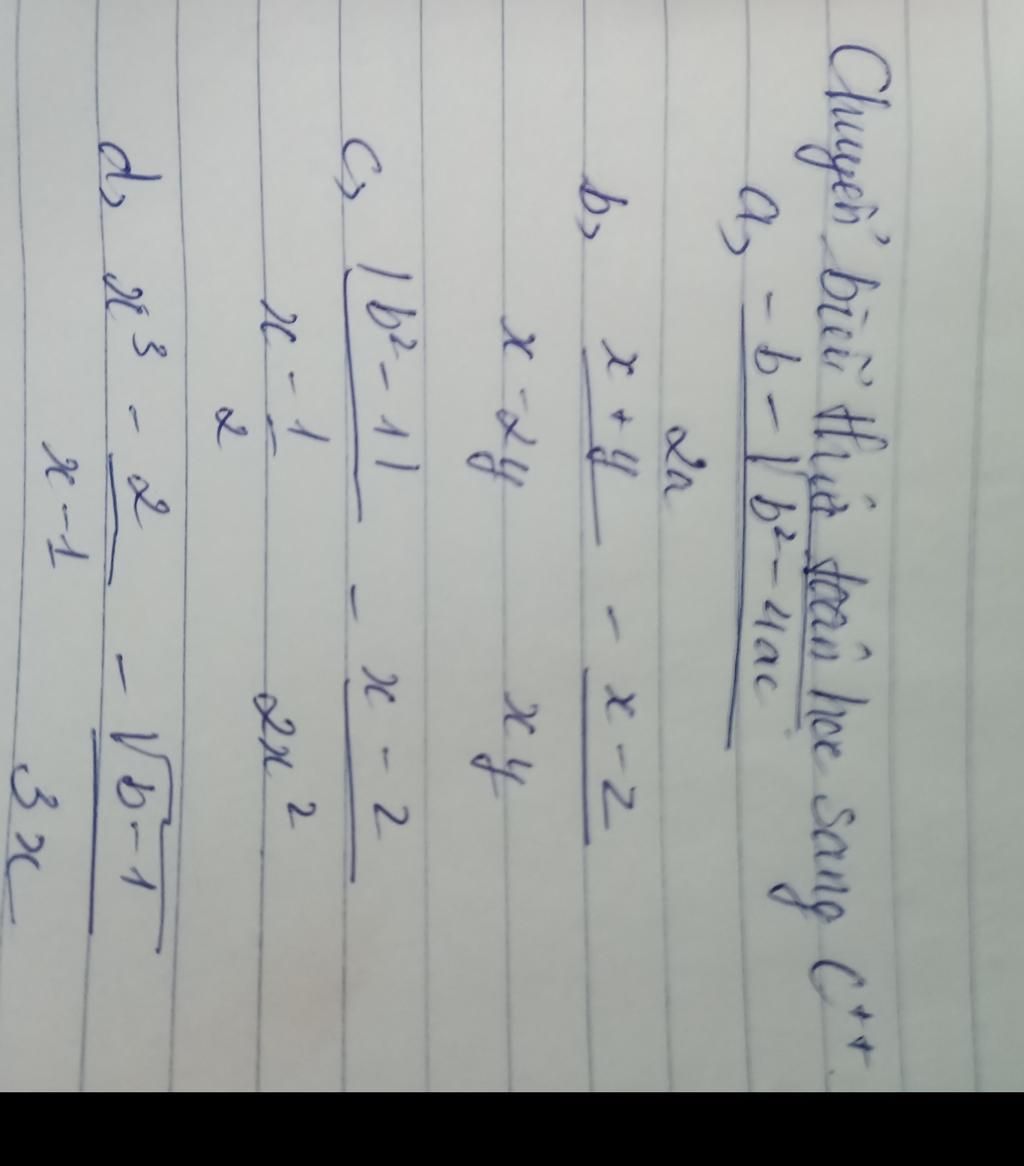 Chuyển biểu thức toán học sang C++
a, -b - √b² - 4ac
2a
b, x + y - x - 2
x - 2y xy
c, |b² - 1| - x - 2
x - 1 2x²
2
d, x³ - 2 - √b - 1
x - 1 3x